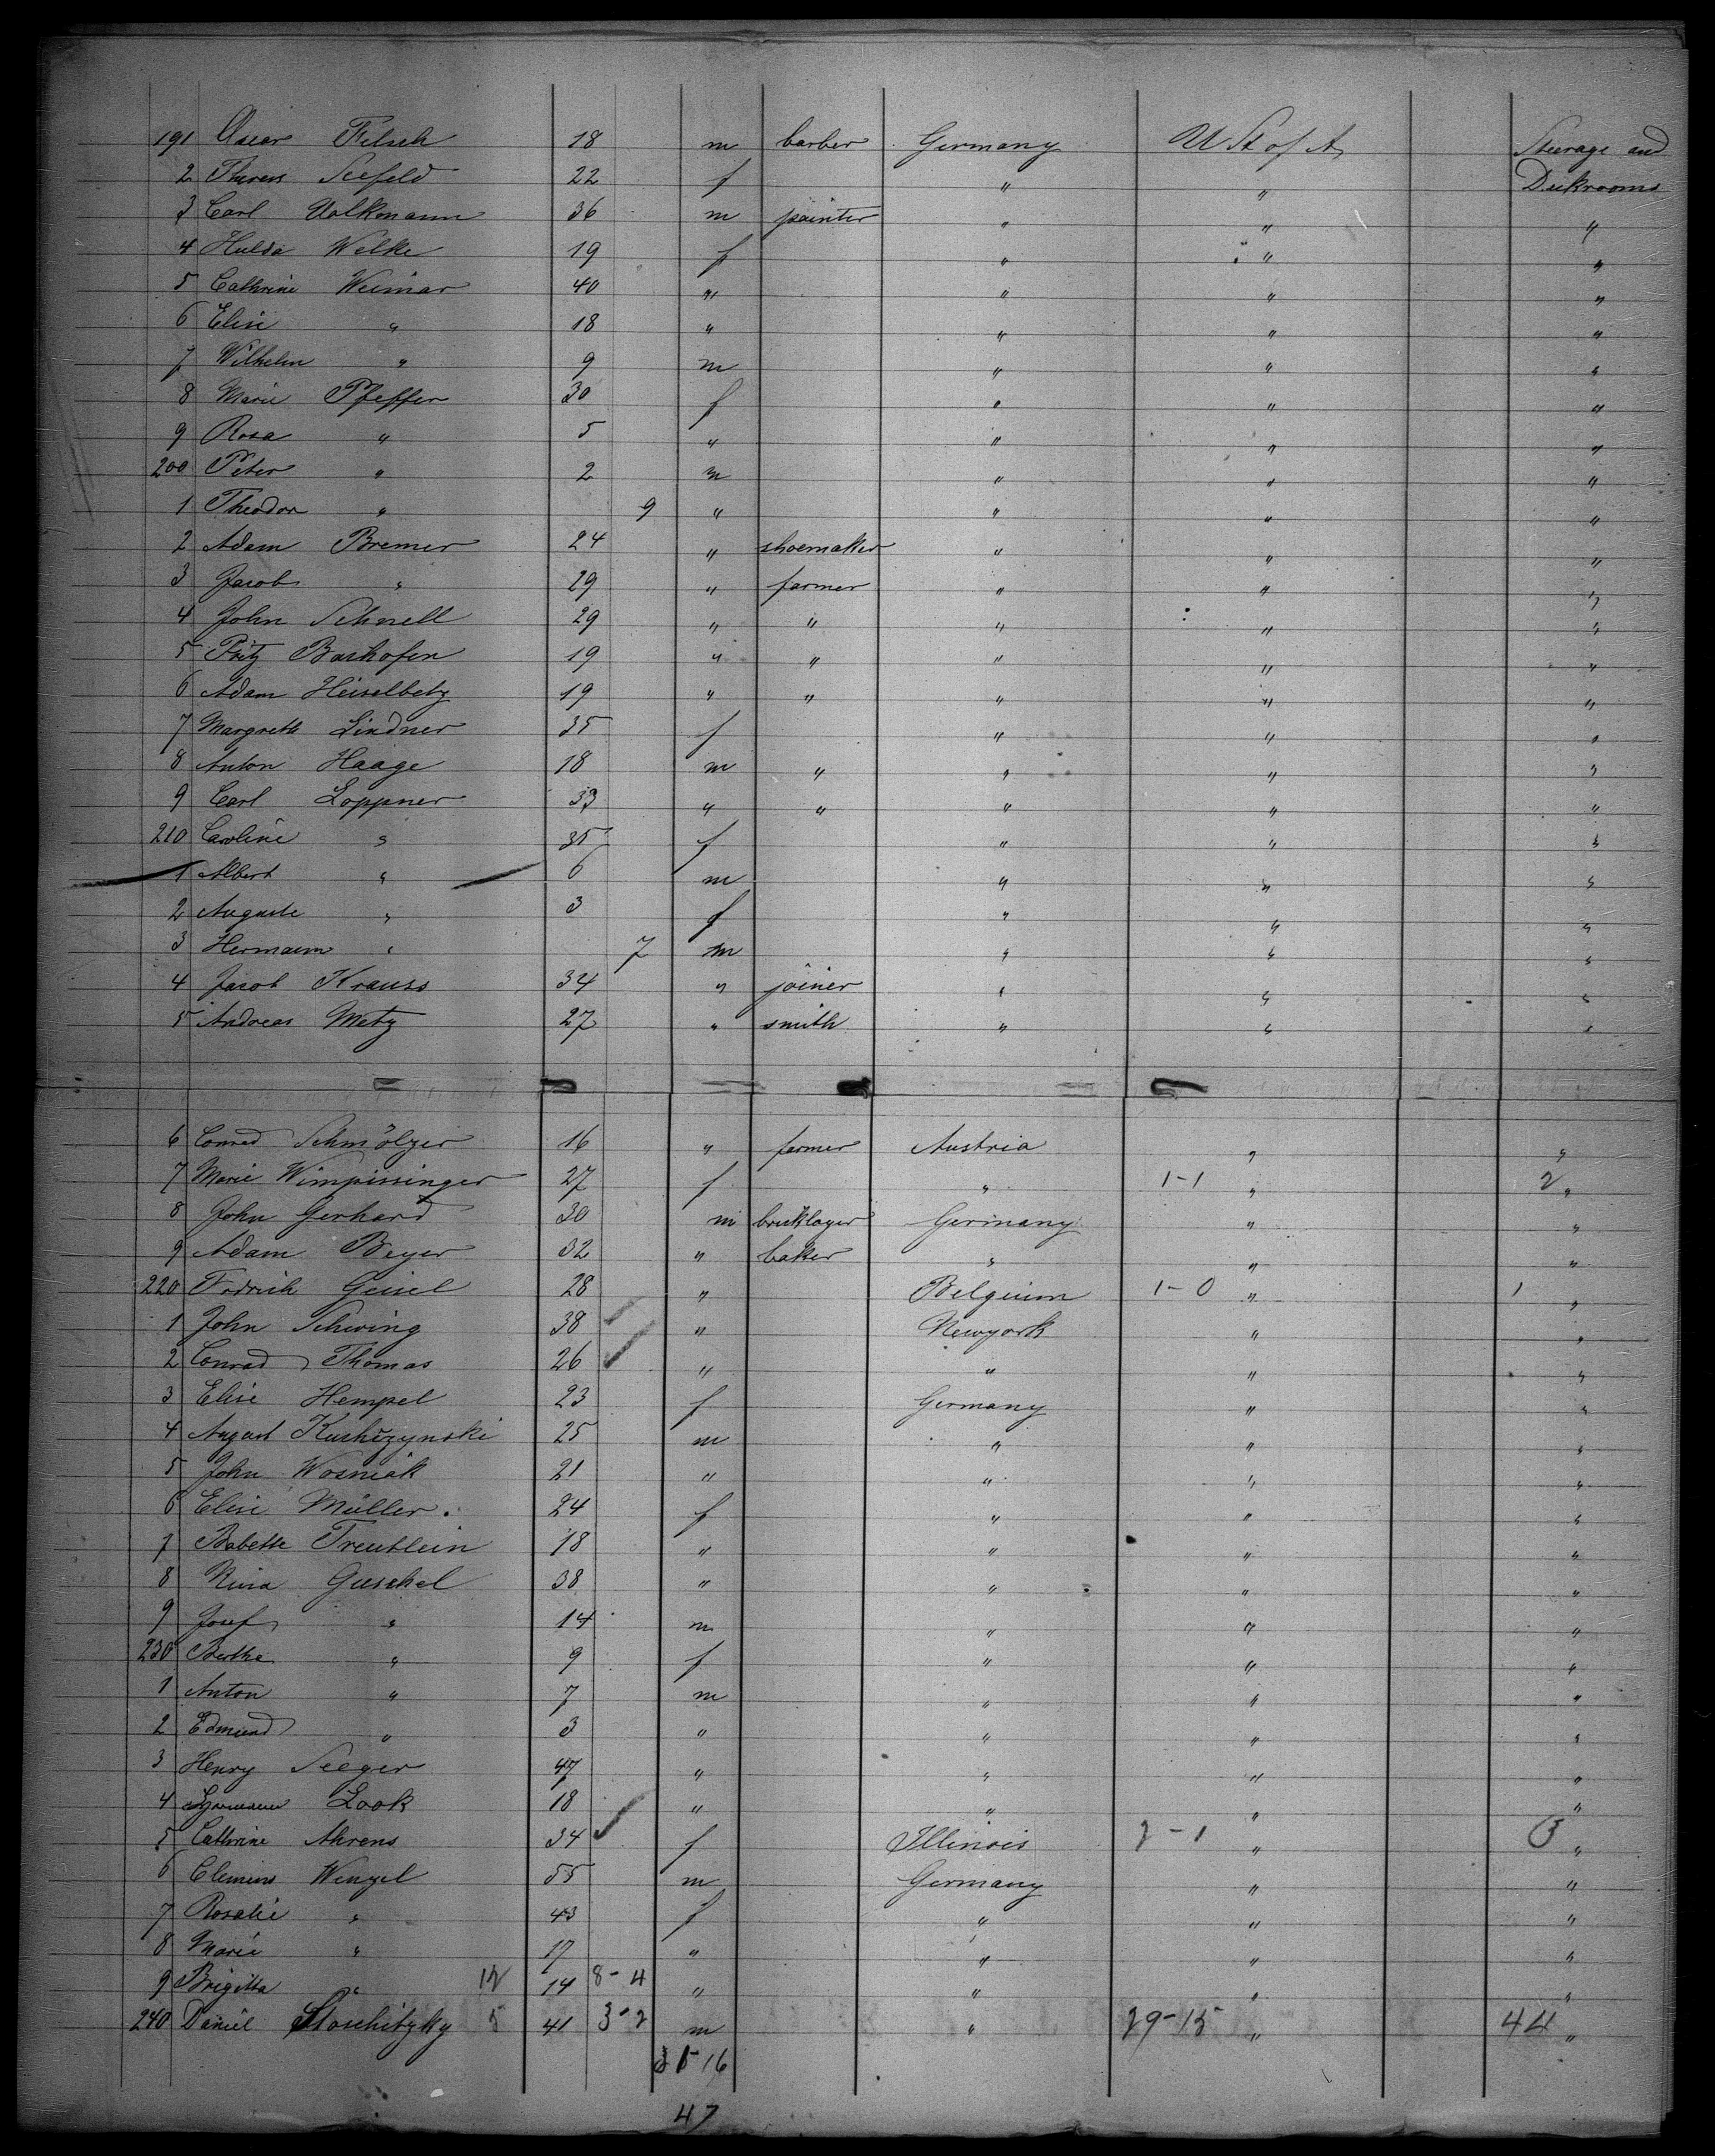 191 Oscar Filsch 18 m barber Germany U St of A, Steerage and
2 Theres Seefeld 22 f " " Deckrooms
3 Carl Volkmann 36 m painter " " "
4 Hulda Welke 19 f " " "
5 Cathrine Weimar 40 " " " "
6 Elise " 18 " " " "
7 Wilhelm " 9 m " " "
8 Marie Pfeffer 30 f " " "
9 Rosa " 5 " " " "
200 Peter " 2 m " " "
1 Theodor " 9 " " " "
2 Adam Bremer 24 " shoemaker " " "
3 Jacob " 29 " farmer " " "
4 John Schnell 29 " " " " "
5 Fritz Barhofen 19 " " " " "
6 Adam Heiselbetz 19 " " " " "
7 Margreth Lindner 35 f " " "
8 Anton Haage 18 m " " " "
9 Carl Loppner 33 " " " " "
210 Caroline " 35 f " " "
1 Albert " 6 m " " "
2 Auguste " 3 f " " "
3 Hermann " 7 m " " "
4 Jacob Krauss 34 " joiner " " "
5 Andreas Metz 27 " smith " " "
6 Conrad Schmölzer 16 " farmer Austria " "
7 Marie Wimpissinger 27 f " 1-1 " 2 "
8 John Gerhard 30 m bricklayer Germany " "
9 Adam Beyer 32 " baker " " "
220 Fodrich Geisel 28 " Belgium 1-0 " 1 "
1 John Schwing 38 " Newyork " "
2 Conrad Thomas 26 " " " "
3 Elise Hempel 23 f Germany " "
4 August Kushizynski 25 m " " "
5 John Wosniak 21 " " " "
6 Elise Müller 24 f " " "
7 Babette Treutlein 18 " " " "
8 Nina Guschel 38 " " " "
9 Josef " 14 m " " "
230 Berthe " 9 f " " "
1 Anton " 7 m " " "
2 Edmund " 3 " " " "
3 Henry Seeger 47 " " " "
4 Look 18 " " " "
5 Cathrine Ahrens 34 f Illinois 2-1 " 3 "
6 Clemens Wenzel 55 m Germany " "
7 Rosalie " 43 f " " "
8 Marie " 17 " " " "
9 Brigitta " 12 14 8-4 " " " "
240 Daniel Stoschitzky 5 41 3-2 m " 29-15 " 44 "
31-16
47